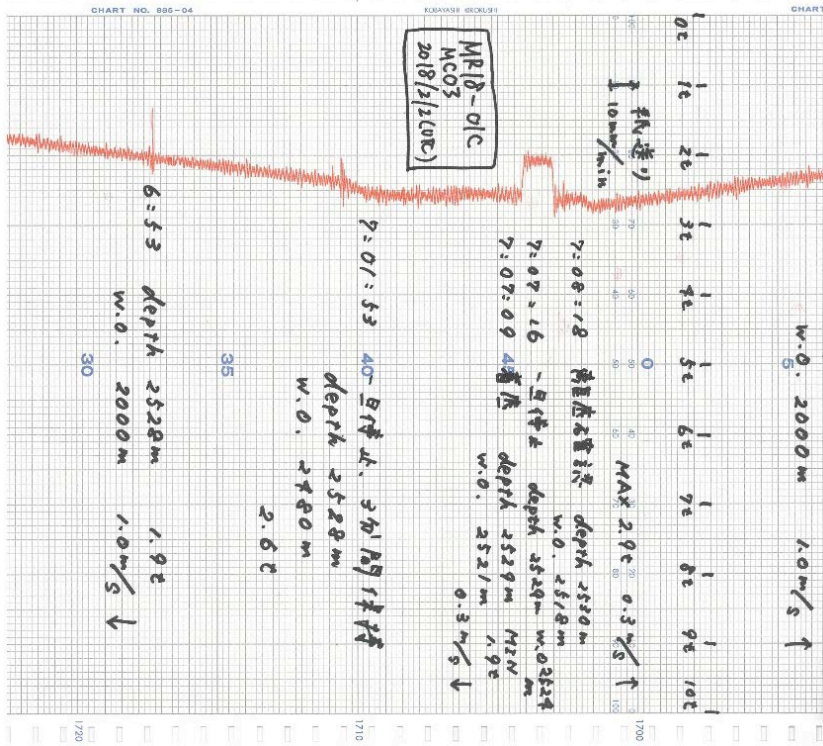 CHART NO. 885-04
KOBAYASHI KIROKUSHI
CHART
MR18-01C
MC03
2018/2/2(UTC)
紙送り
10mm/min
0t
1t
2t
3t
4t
5t
6t
7t
8t
9t
10t
W.O. 2000m 1.0m/s ↑
MAX 2.9t 0.3m/s ↑
7:08:18 離底確認 depth 2530m
W.O. 2518m
7:07:26 一旦停止 depth 2529m W.O 2524m
7:07:09 着底 depth 2529m MIN 1.9t
W.O. 2521m
0.3m/s ↓
7:01:53 一旦停止. 3分間待機
depth 2528m
W.O. 2480m
2.6t
6:53 depth 2528m 1.9t
W.O. 2000m 1.0m/s ↓
30
35
40
45
0
5
1720
1710
1700